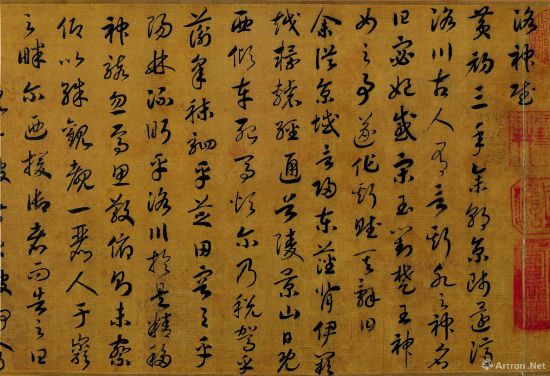 洛神賦
黄初三年余朝京師還濟
洛川古人有言斯水之神名
曰宓妃感宋玉對楚王神
女之事遂作斯賦其辭曰
余從京域言歸東藩背伊闕
越轘轅經通谷陵景山日既
西傾車殆馬煩爾乃稅駕乎
蘅皋秣駟乎芝田容與乎
陽林流眄乎洛川於是精移
神駭忽焉思散俯則未察
仰以殊觀覩一麗人于巖
之畔爾迺援御者而告之曰
Artron.Net